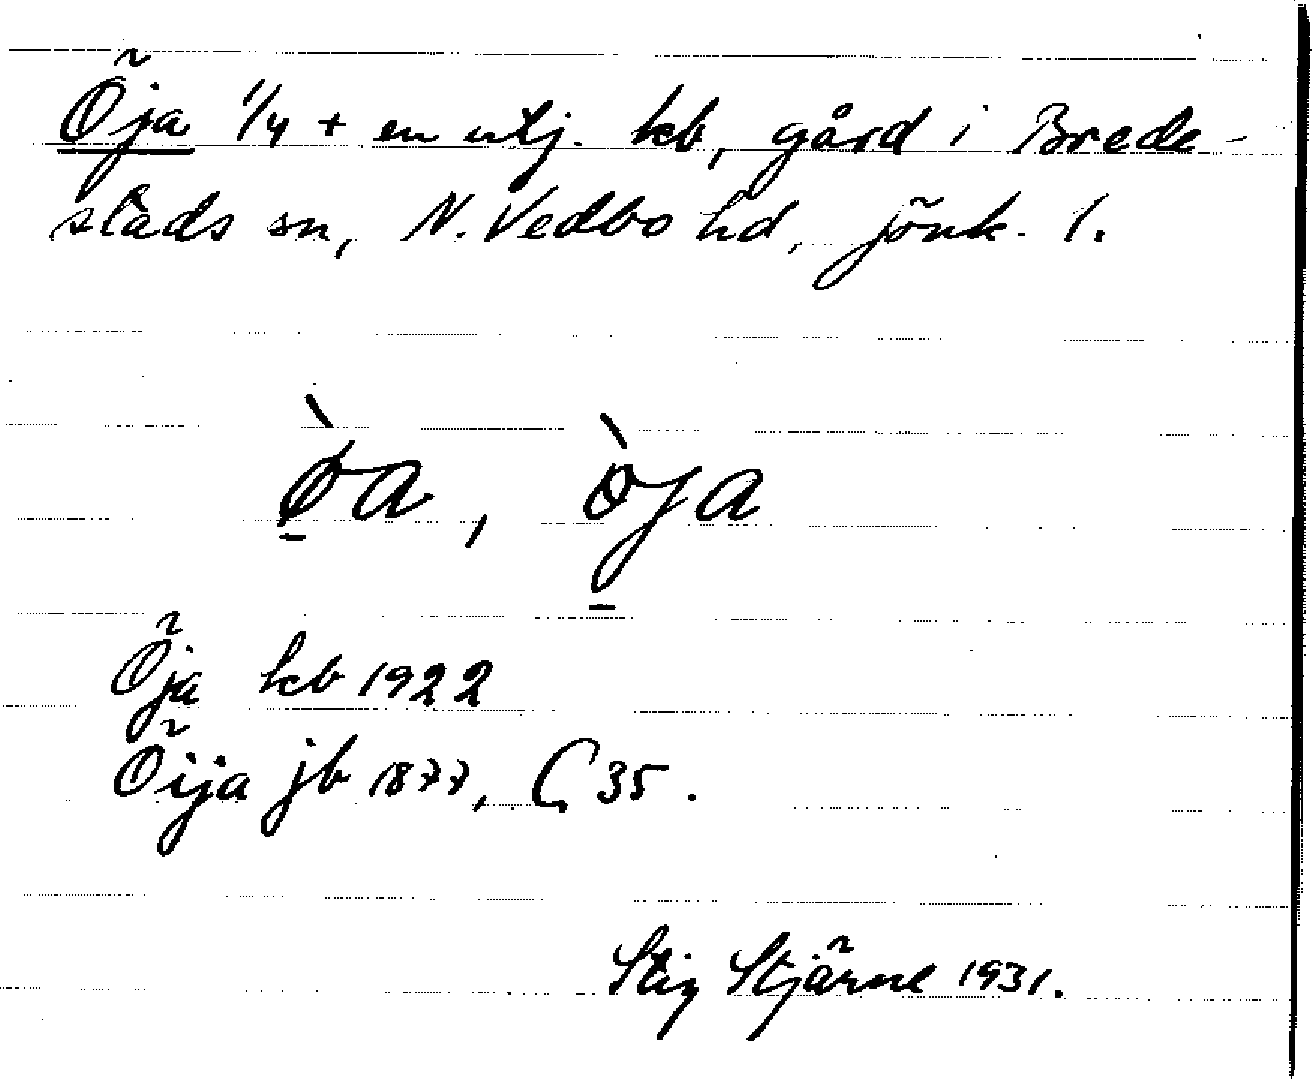 Öja 1/4 + en utj. kb, gård i Brede-
stads sn, N. Vedbo hd, Jönk. l.
ø̱̀a, ö̀j̱a
Öja kb 1922
Öija jb 1877, C 35.
Stig Stjärne 1931.